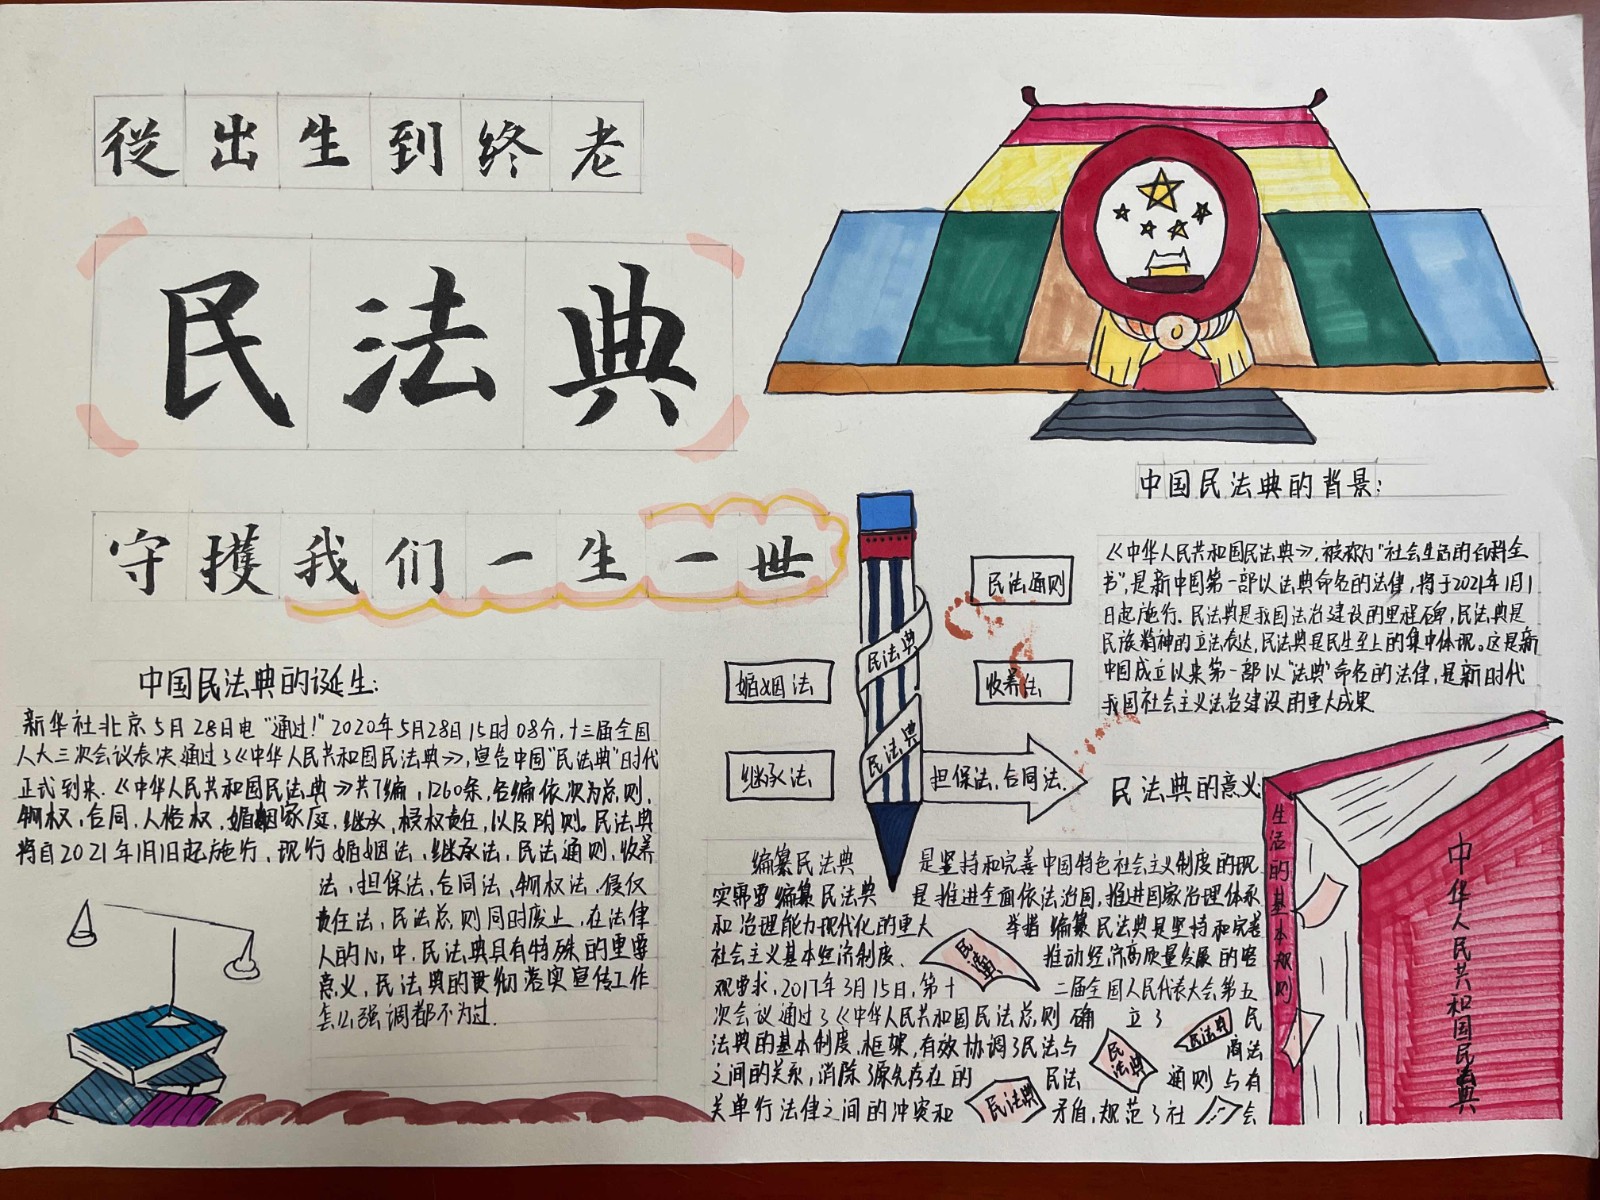 從出生到终老
民法典
守擭我们一生一世
中国民法典的诞生:
新华社北京5月28日电"通过!"2020年5月28日15时08分,十三届全国
人大三次会议表决通过了《中华人民共和国民法典》,宣告中国"民法典"时代
正式到来.《中华人民共和国民法典》共7编,1260条,各编依次为总则,
物权,合同,人格权,婚姻家庭,继承,侵权责任,以及附则。民法典
将自2021年1月1日起施行,现行婚姻法,继承法,民法通则,收养
法,担保法,合同法,物权法,侵权
责任法,民法总则同时废止,在法律
人的心中,民法典具有特殊的重要
意义,民法典的贯彻落实宣传工作
怎么强调都不为过.
民法典
民法典
民法通则
婚姻法
收养法
继承法
担保法,合同法.
中国民法典的背景:
《中华人民共和国民法典》,被称为"社会生活的百科全
书",是新中国第一部以法典命名的法律,将于2021年1月1
日起施行.民法典是我国法治建设的里程碑,民法典是
民族精神的立法表达,民法典是民生至上的集中体现。这是新
中国成立以来第一部以"法典"命名的法律,是新时代
我国社会主义法治建设的重大成果
民法典的意义:
编纂民法典 是坚持和完善中国特色社会主义制度的现
实需要编纂民法典 是推进全面依法治国,推进国家治理体系
和治理能力现代化的重大 举措 编纂民法典是坚持和完善
社会主义基本经济制度、 推动经济高质量发展的客
观要求,2017年3月15日,第十 二届全国人民代表大会第五
次会议通过了《中华人民共和国民法总则 确 立了 民
法典的基本制度,框架,有效协调了民法与 商法
之间的关系,消除了原先存在的 民法 通则与有
关单行法律之间的冲突和 矛盾,规范了社 会
民法典
民法典
民法典
民法典
生活的基本规则
中华人民共和国民法典